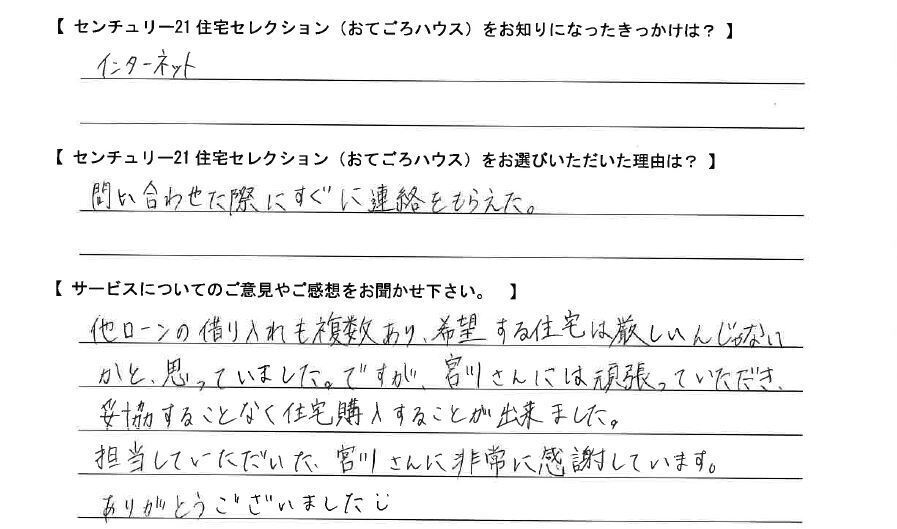 【 センチュリー21 住宅セレクション（おてごろハウス）をお知りになったきっかけは？ 】
インターネット
【 センチュリー21 住宅セレクション（おてごろハウス）をお選びいただいた理由は？ 】
問い合わせた際にすぐに連絡をもらえた。
【 サービスについてのご意見やご感想をお聞かせ下さい。 】
他ローンの借り入れも複数あり、希望する住宅は厳しいんじゃない
かと、思っていました。ですが、宮川さんには頑張っていただき、
妥協することなく住宅購入することが出来ました。
担当していただいた、宮川さんに非常に感謝しています。
ありがとうございました